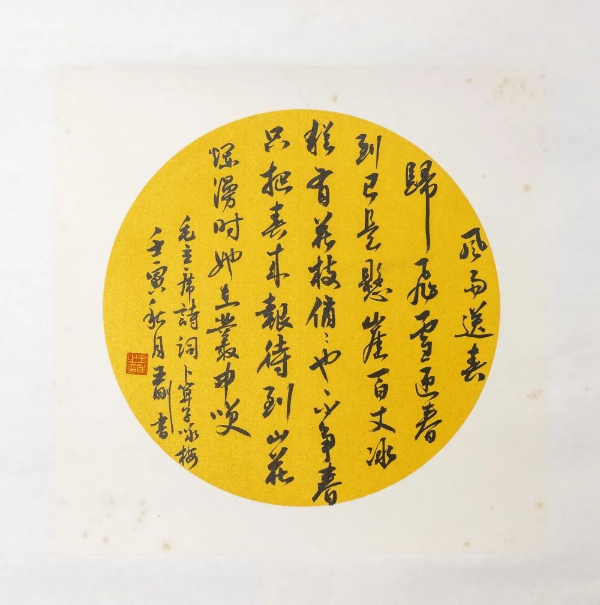 風雨送春
歸飛雪迎春
到已是懸崖百丈冰
猶有花枝俏〻也不争春
只把春来報待到山花
爛漫時她在叢中笑
毛主席詩詞卜算子咏梅
壬寅秋月書